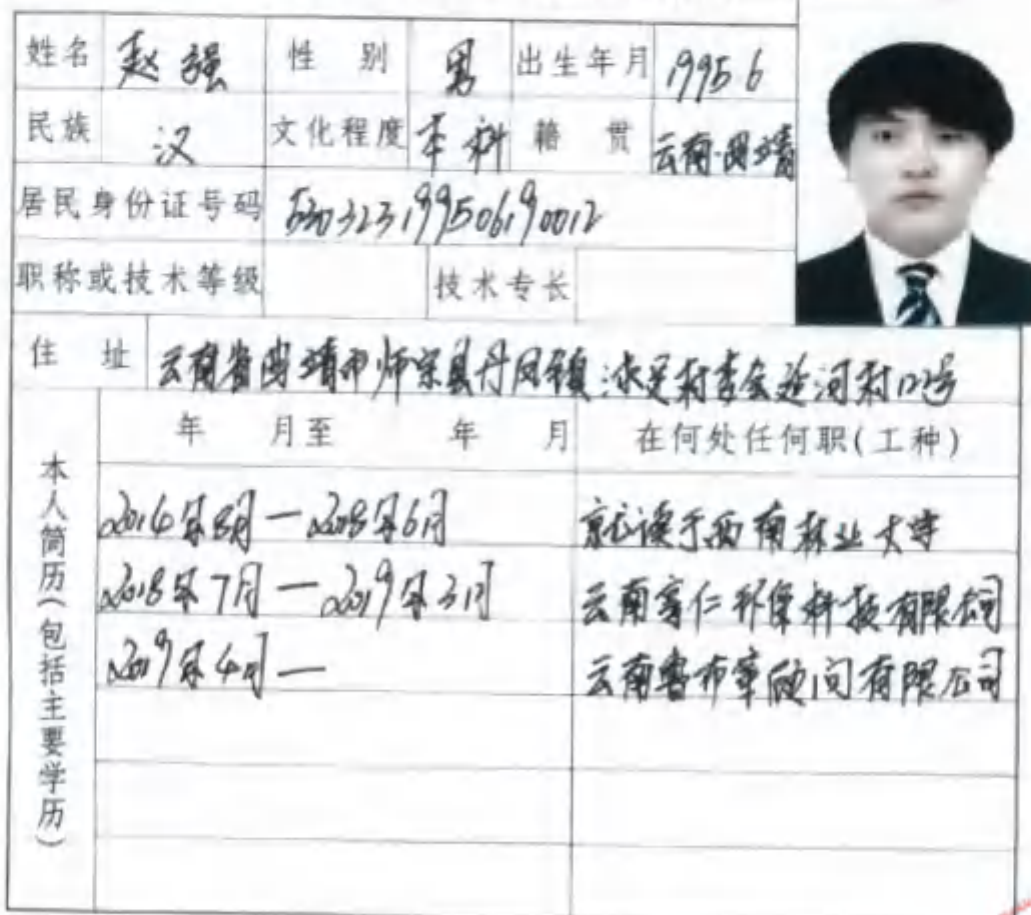 姓名 赵强 性别 男 出生年月 1995.6
民族 汉 文化程度 本科 籍贯 云南·曲靖
居民身份证号码 530323199506190012
职称或技术等级 技术专长
住址 云南省曲靖市师宗县丹凤镇 村委会 河村122号
年 月至 年 月 在何处任何职(工种)
本人简历(包括主要学历)
2014年8月—2018年6月 就读于西南林业大学
2018年7月—2019年3月 云南 仁环保科技有限公司
2019年4月— 云南鲁布革顾问有限公司